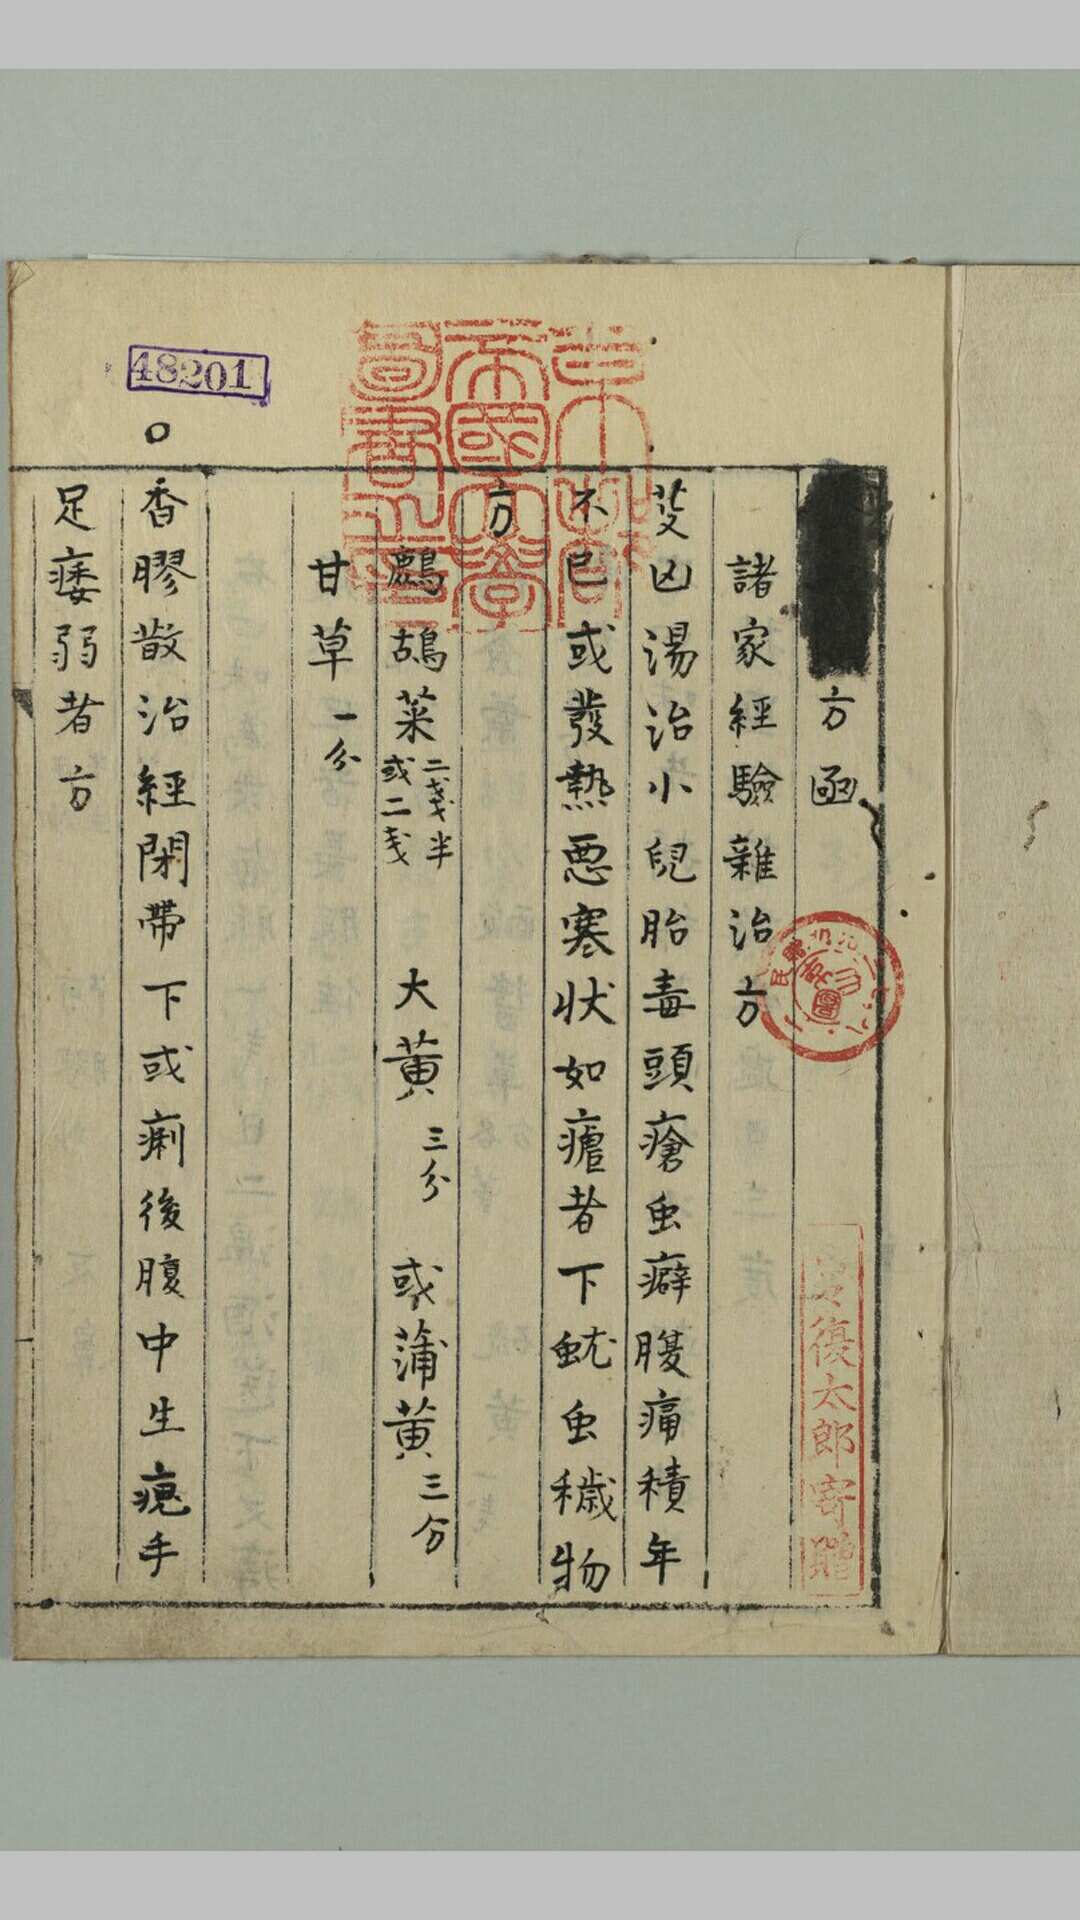 方函
諸家經驗雜治方
芟凶湯治小兒胎毒頭瘡虫癖腹痛積年
不已或發熱惡寒状如瘧者下蚘虫穢物
方
鷓鴣菜二戔半或二戔 大黄三分 或蒲黄三分
甘草一分
香膠散治經閉帶下或痢後腹中生瘜手
足痿弱者方
48201
帝國大學
圖書之
復太郎寄贈